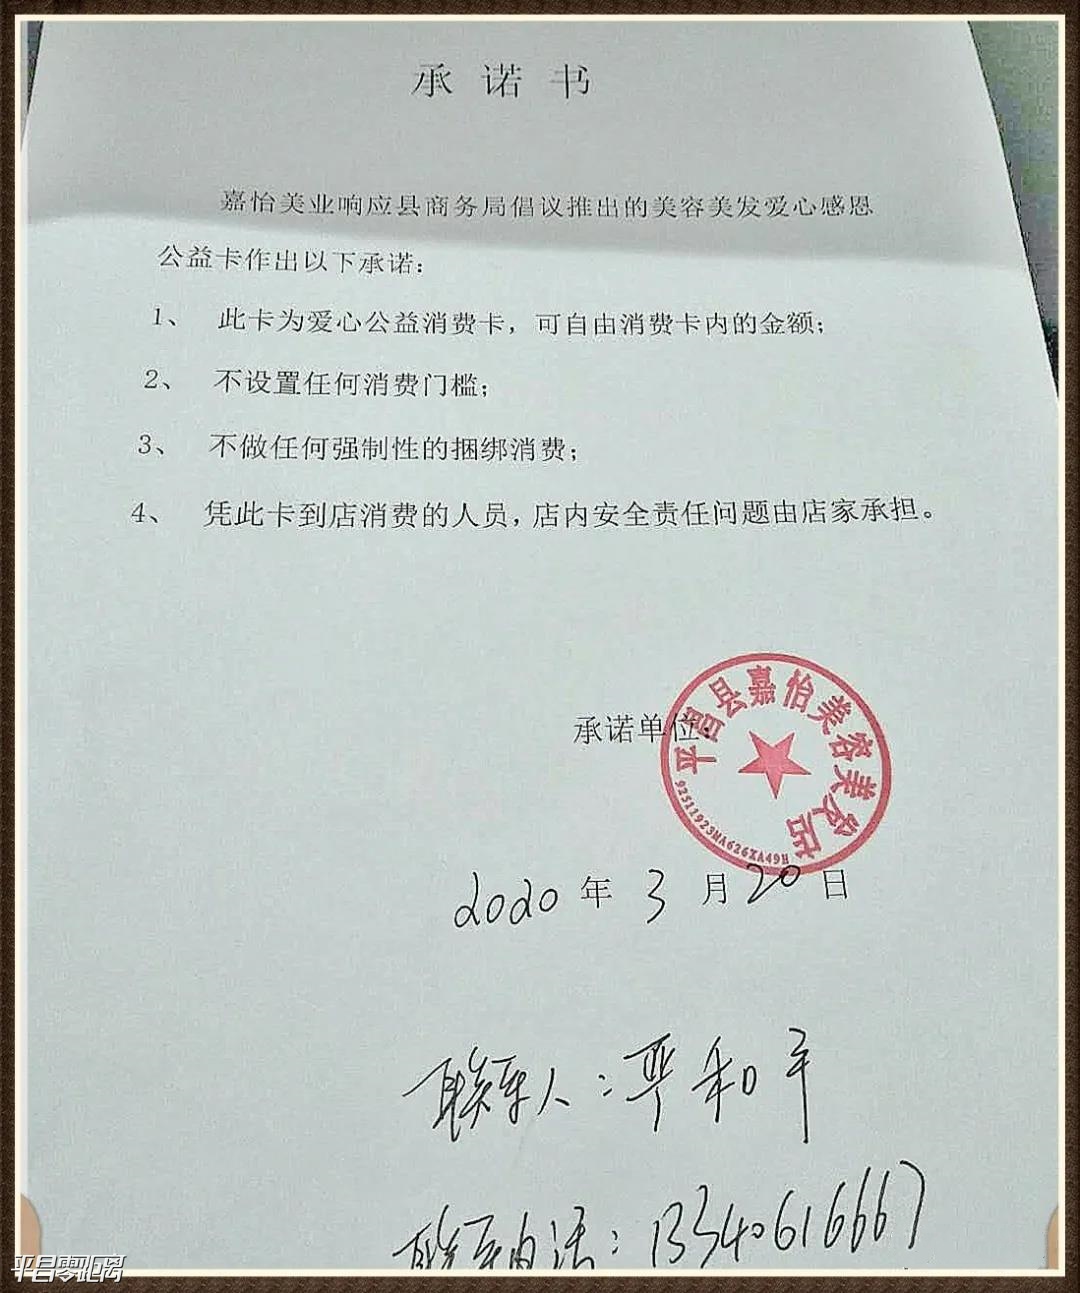 承诺书
嘉怡美业响应县商务局倡议推出的美容美发爱心感恩
公益卡作出以下承诺：
1、 此卡为爱心公益消费卡，可自由消费卡内的金额；
2、 不设置任何消费门槛；
3、 不做任何强制性的捆绑消费；
4、 凭此卡到店消费的人员，店内安全责任问题由店家承担。
承诺单位：
平昌县嘉怡美容美发店
92511923MA626XA49H
2020年3月20日
联系人：严和平
联系电话：13340616667
平昌零距离